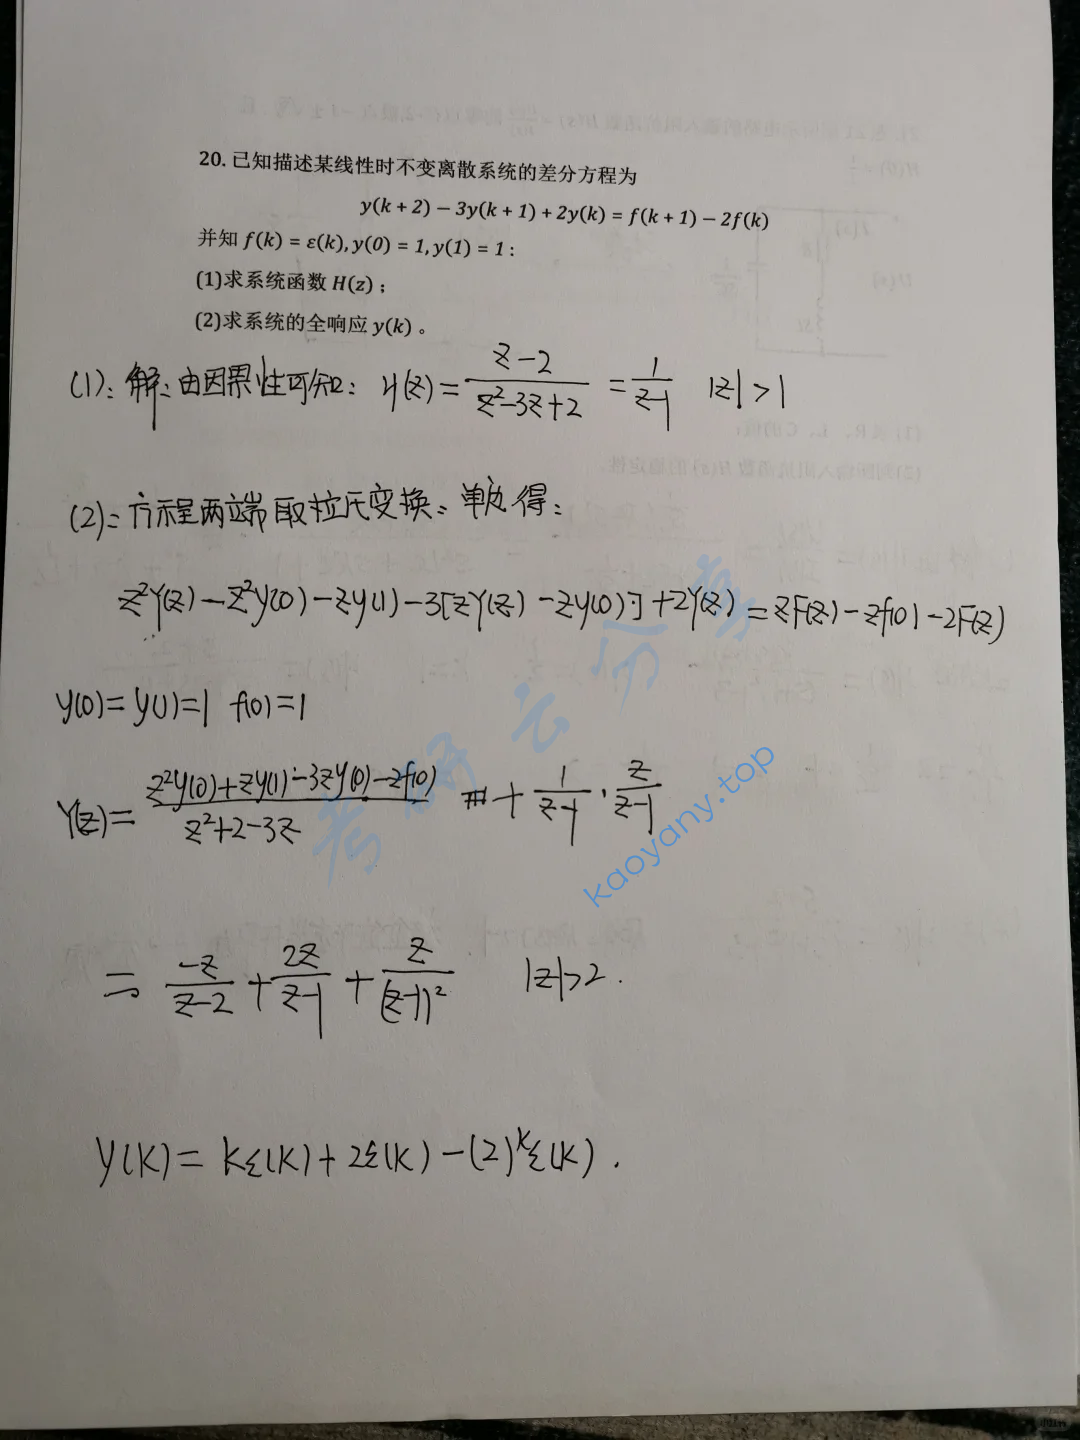 20. 已知描述某线性时不变离散系统的差分方程为
y(k + 2) − 3y(k + 1) + 2y(k) = f(k + 1) − 2f(k)
并知 f(k) = ε(k), y(0) = 1, y(1) = 1：
(1)求系统函数 H(z)；
(2)求系统的全响应 y(k)。
(1): 解: 由因果性可知: H(z) = (z-2)/(z²-3z+2) = 1/(z-1) |z|>1
(2): 方程两端取拉氏变换: 单边得:
z²Y(z) - z²y(0) - zy(1) - 3[zY(z) - zy(0)] + 2Y(z) = zF(z) - zf(0) - 2F(z)
y(0) = y(1) = 1 f(0) = 1
Y(z) = (z²y(0)+zy(1)-3zy(0)-zf(0))/(z²+2-3z) + 1/(z-1) · z/(z-1)
= -z/(z-2) + 2z/(z-1) + z/(z-1)² |z|>2.
y(k) = kε(k) + 2ε(k) - (2)^k ε(k).
考研云分享
kaoyany.top